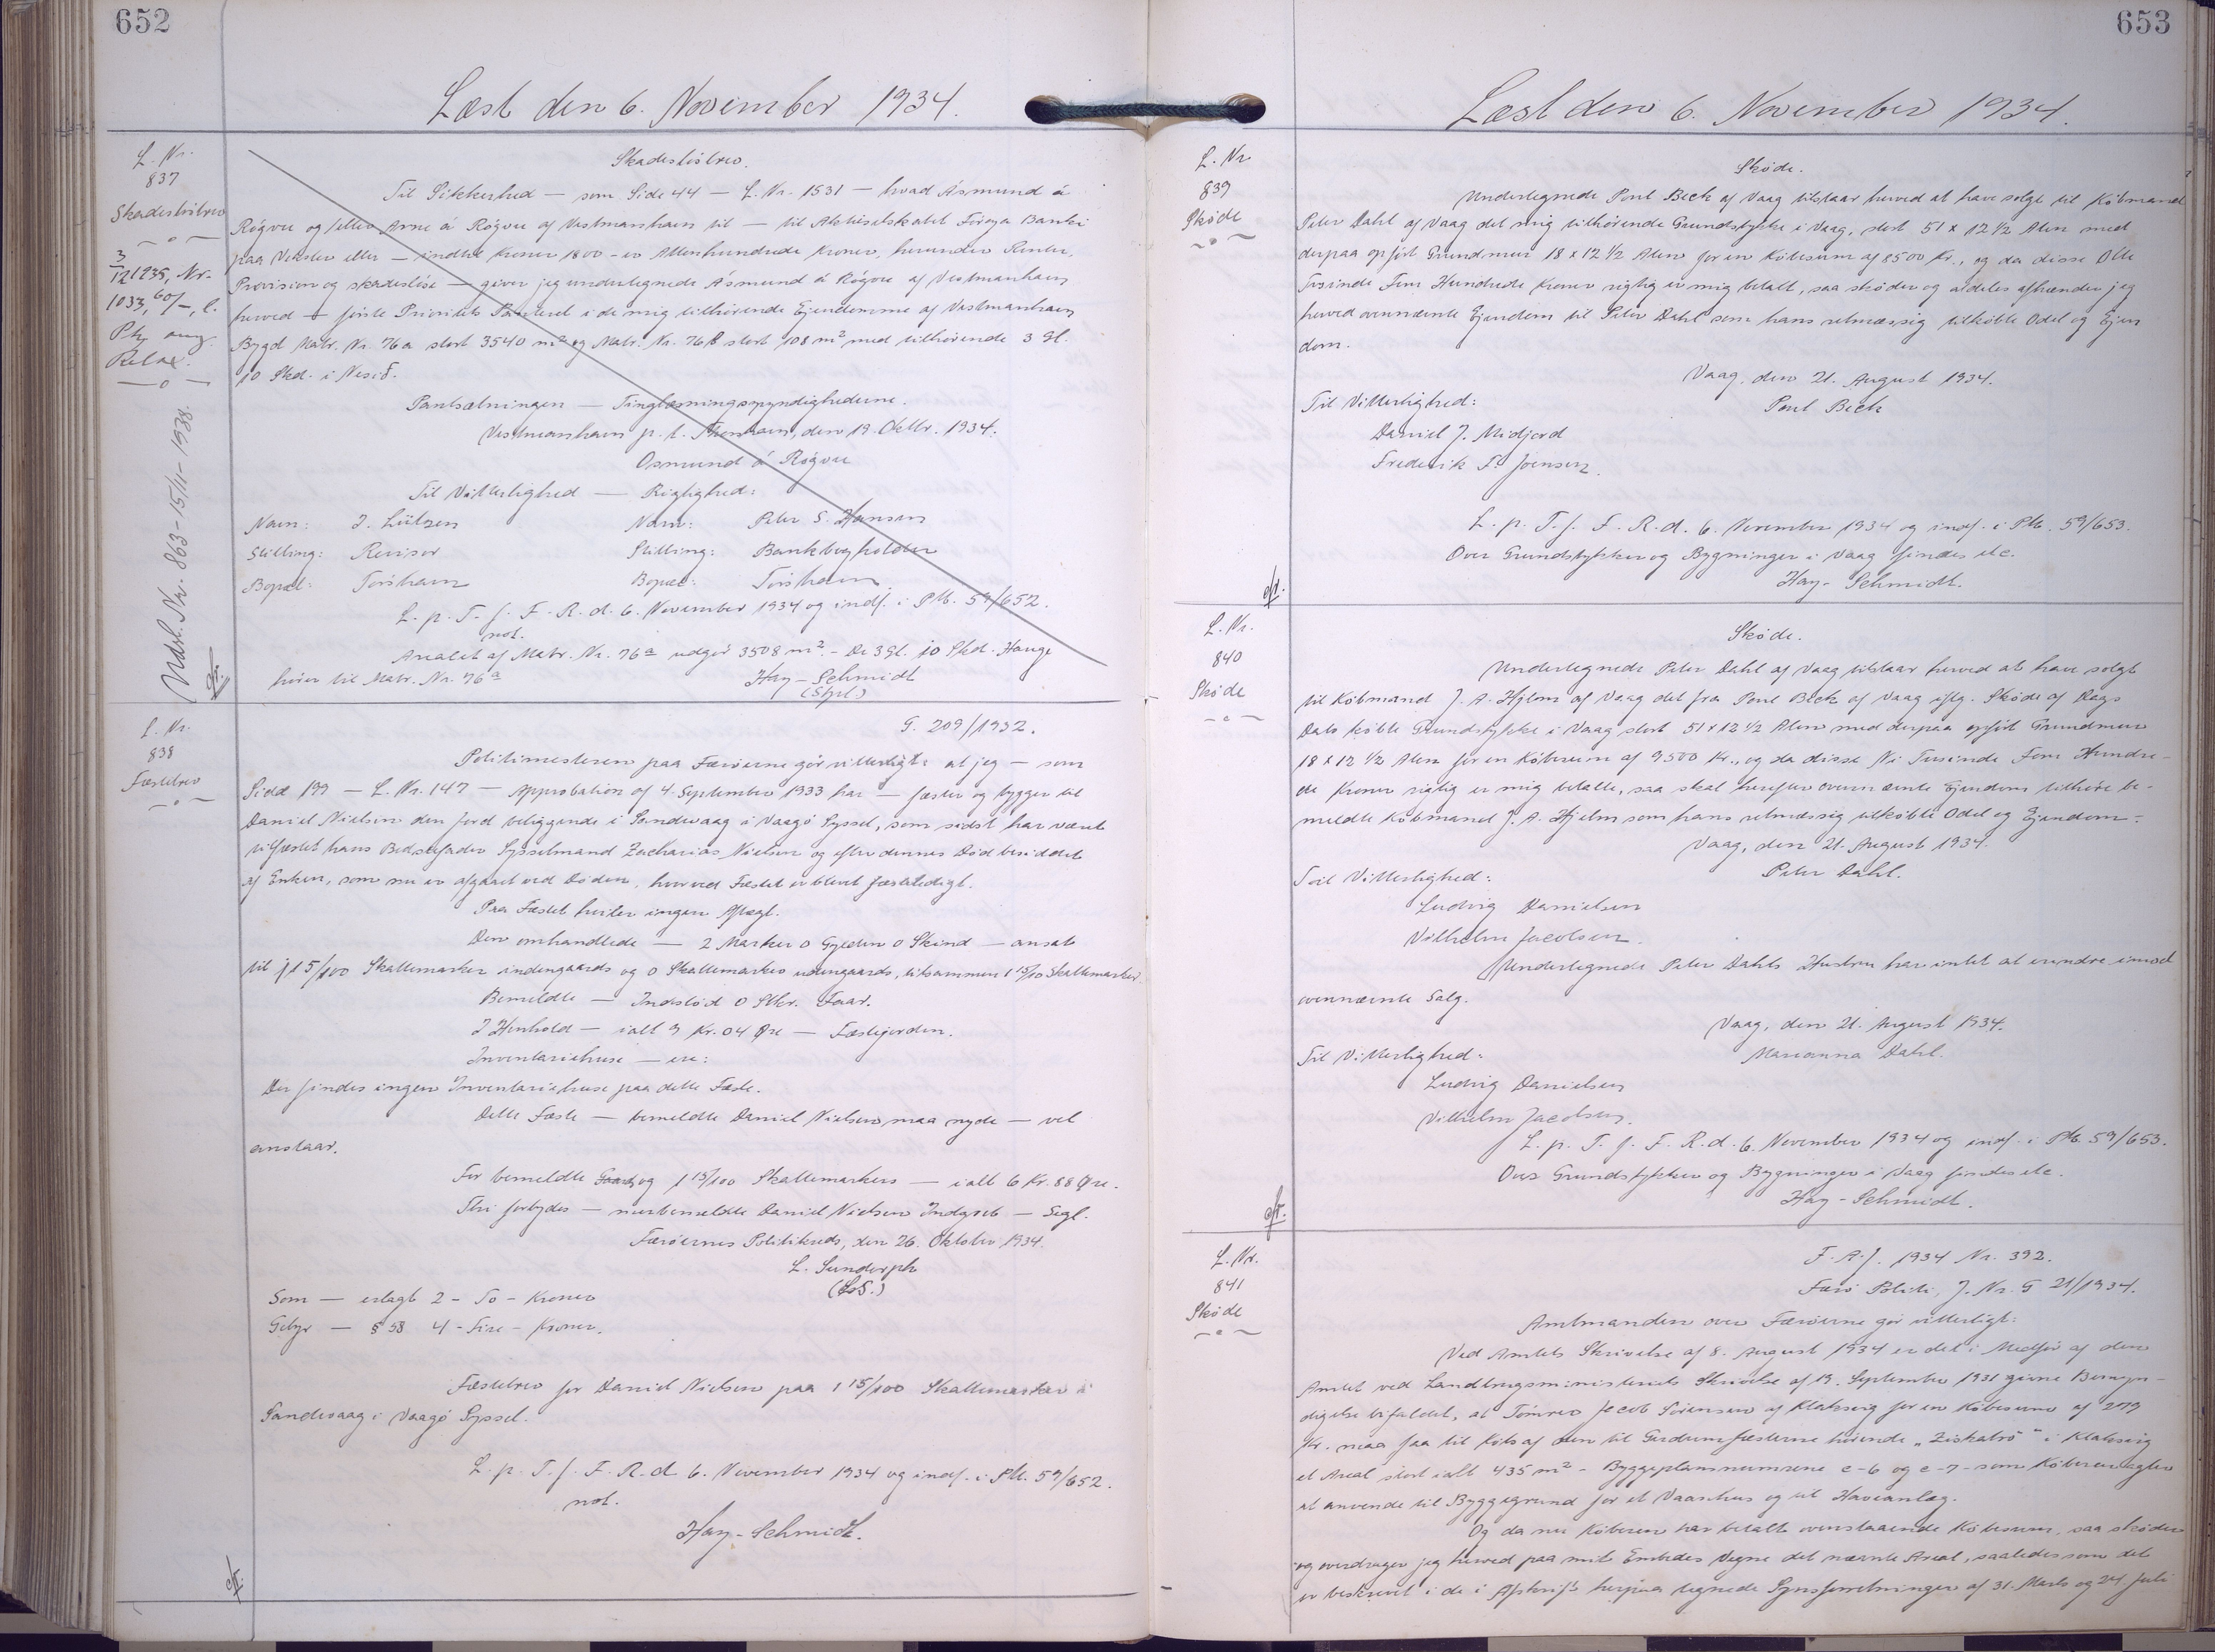 652
Læst den 6. November 1934.
L. Nr.
837
Skadesløsbrev
3/12 1935, Nr.
1033,
Relax.
Udsl. Nr. 863 - 15/11 - 1938.
Skadesløsbrev.
Til Sikkerhed — som Side 44 — L. Nr. 1531 — hvad Ásmund á
Rógvu og/eller Arne á Rógvu af Vestmanhavn til — til Aktieselskabet Føroya Banki
paa Veksler eller — indtil Kroner 1800 - er Attenhundrede Kroner, herunder Renter,
Provision og skadesløse — giver jeg undertegnede Ásmund á Rógvu af Vestmanhavn
herved — første Prioritets Panteret i de mig tilhørende Ejendomme af Vestmanhavn
Bygd Matr. Nr. 76a stort 3540 m² og Matr. Nr. 76 stort 108 m² med tilhørende 3 Gl.
10 Skd. i
Pantsætningen — Tinglæsningsmyndighederne.
Vestmanhavn p. t. Thorshavn, den 19. Oktbr. 1934.
Osmund á Rógvu
Til Vitterlighed — Rigtighed:
Navn: J. Lützen Navn: Peter S. Hansen
Stilling: Revisor Stilling: Bankbogholder
Bopæl: Torshavn Bopæl: Torshavn
L. p. T. f. F. R. d. 6. November 1934 og indf. i Ptb. 59/652.
not.
Arealet af Matr. Nr. 76a udgør 3508 m². - De 3 Gl. 10 Skd. Hauge
hører til Matr. Nr. 76a
Hay-Schmidt
L. Nr.
838
Fæstebrev
G. 209/1932.
Politimesteren paa Færøerne gør vitterligt: at jeg — som
Side 199 — L. Nr. 147 — Approbation af 4. September 1933 har — fæster og bygger til
Daniel Nielsen den Jord beliggende i Sandevaag i Vaagø Syssel, som sidst har været
bortfæstet hans Bedstefader Sysselmand Zacharias Nielsen og efter dennes Død besiddet
af Enken, som nu er afgaaet ved Døden, hvorved Fæstet er blevet fæsteledigt.
Paa Fæstet hviler ingen Aftægt.
Den omhandlede — 2 Marker 0 Gylden 0 Skind — ansat
til 1 15/100 Skattemarker indengaards og 0 Skattemarker udengaards, tilsammen 1 15/100 Skattemarker.
Bemeldte — Indstød 0 Stkr. Faar.
I Henhold — ialt 3 Kr. 04 Øre — Fæstejorden.
Inventariehuse — ere:
Der findes ingen Inventariehuse paa dette Fæste.
Dette Fæste — bemeldte Daniel Nielsen maa nyde — vel
anstaar.
For bemeldte Gaard og 1 15/100 Skattemarkers — ialt 6 Kr. 88 Øre.
Thi forbydes — mer bemeldte Daniel Nielsen Indgreb — Segl.
Færøernes Politikreds, den 26. Oktober 1934.
L. Sundorph
(L.S.)
Som — erlagt 2 - To - Kroner
Gebyr — § 58 4 - Fire - Kroner.
Fæstebrev for Daniel Nielsen paa 1 15/100 Skattemarker i
Sandevaag i Vaagø Syssel.
L. p. T. f. F. R. d. 6. November 1934 og indf. i Ptb. 59/652.
not.
Hay-Schmidt.
653
Læst den 6. November 1934.
L. Nr
839
Skøde
Skøde.
Undertegnede Poul Beck af Vaag tilstaar herved at have solgt til Købmand
Peter Dahl af Vaag det mig tilhørende Grundstykke i Vaag, stort 51 x 12 1/2 Alen med
derpaa opført Grundmur 18 x 12 1/2 Alen for en Købesum af 8500 Kr., og da disse Otte
Tusinde Fem Hundrede Kroner rigtig er mig betalt, saa skøder og aldeles afhænder jeg
herved ovennævnte Ejendom til Peter Dahl som hans retmæssig tilkøbte Odel og Ejen
dom.
Vaag, den 21. August 1934.
Til Vitterlighed: Poul Beck
Daniel J. Midjord
Frederik F. Joensen.
L. p. T. f. F. R. d. 6. November 1934 og indf. i Ptb. 59/653.
Over Grundstykker og Bygninger i Vaag findes etc.
Hay-Schmidt.
L. Nr.
840
Skøde
Skøde.
Undertegnede Peter Dahl af Vaag tilstaar herved at have solgt
til Købmand J. A. Hjelm af Vaag det fra Poul Beck af Vaag iflg. Skøde af Dags
Dato købte Grundstykke i Vaag stort 51 x 12 1/2 Alen med derpaa opført Grundmur
18 x 12 1/2 Alen for en Købesum af 9500 Kr., og da disse Ni Tusinde Fem Hundre-
de Kroner rigtig er mig betalte, saa skal herefter ovennævnte Ejendom tilhøre be-
meldte Købmand J. A. Hjelm som hans retmæssig tilkøbte Odel og Ejendom.
Vaag, den 21. August 1934.
Til Vitterlighed: Peter Dahl.
Ludvig Danielsen
Vilhelm Jacobsen.
Undertegnede Peter Dahls Hustru har intet at erindre imod
ovennævnte Salg.
Vaag, den 21. August 1934.
Til Vitterlighed: Marianna Dahl.
Ludvig Danielsen
Vilhelm Jacobsen.
L. p. T. f. F. R. d. 6. November 1934 og indf. i Ptb. 59/653.
Over Grundstykker og Bygninger i Vaag findes etc.
Hay-Schmidt.
L. Nr.
841
Skøde
F. A. J. 1934 Nr. 392.
Færø Politi, J. Nr. G 21/1934.
Amtmanden over Færøerne gør vitterligt:
Ved Amtets Skrivelse af 8. August 1934 er det i Medfør af den
Amtet ved Landbrugsministeriets Skrivelse af 19. September 1931 givne Bemyn-
digelse bifaldet, at Tømrer Jacob Sørensen af Klaksvig for en Købesum af 279
Kr. maa faa til Købs af den til Gerdumfæsterne hørende „Ziskatrö“ i Klaksvig
et Areal stort ialt 435 m² - Byggeplansnumrene c-6 og c-7 - som Køberen agter
at anvende til Byggegrund for et Vaanhus og til Haveanlæg.
Og da nu Køberen har betalt ovenstaaende Købesum, saa skøder
og overdrager jeg herved paa mit Embedes Vegne det nævnte Areal, saaledes som det
er beskrevet i de i Afskrift herpaa tegnede Synsforretninger af 31. Marts og 24. Juli